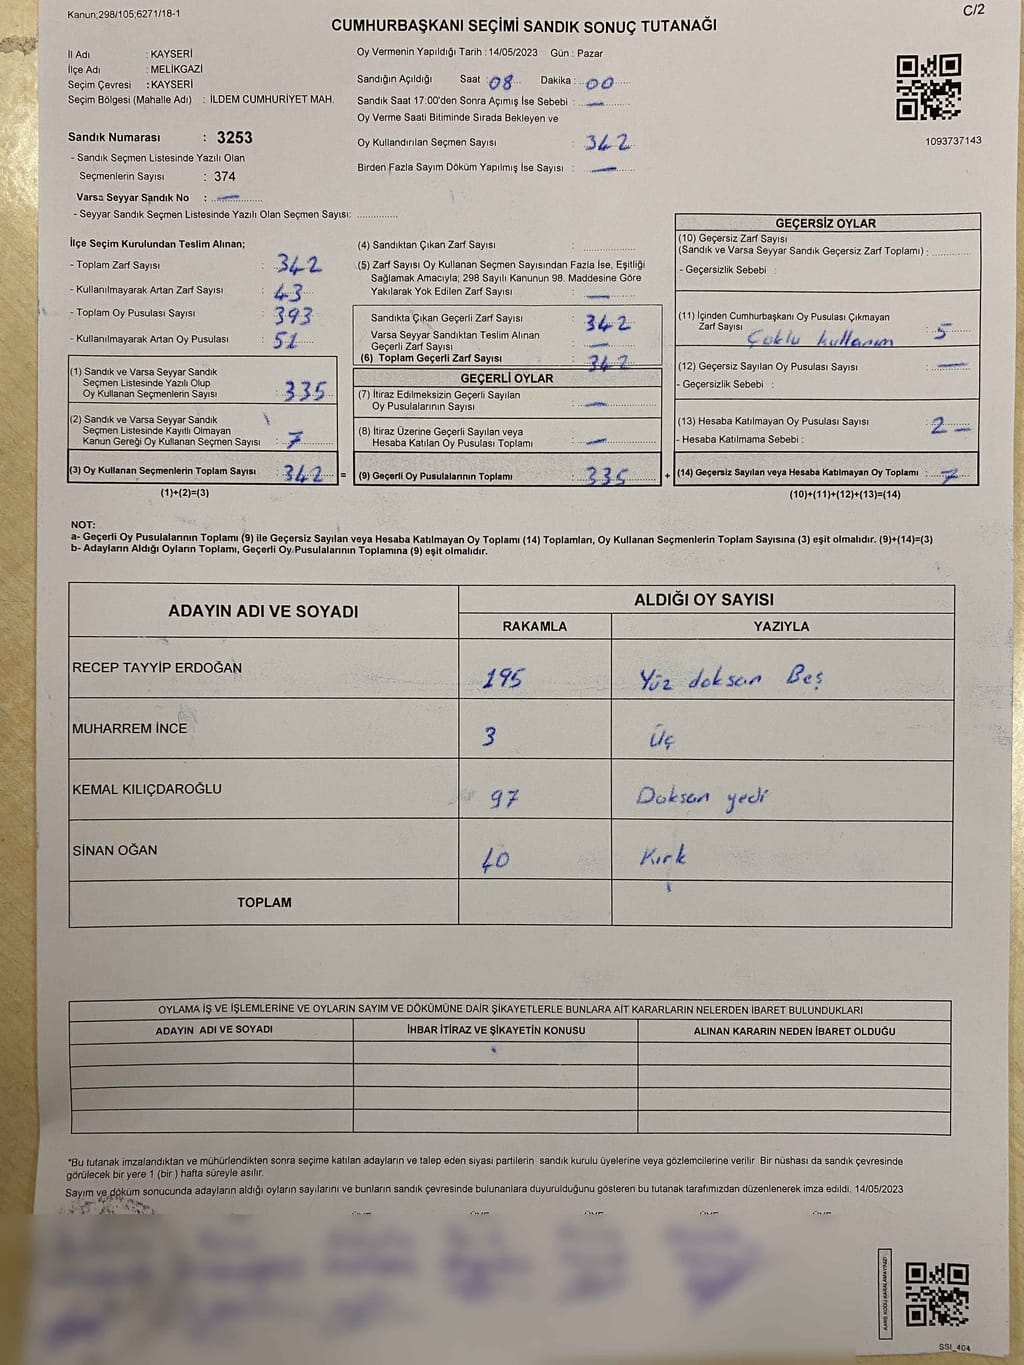 Kanun;298/105;6271/18-1
C/2
CUMHURBAŞKANI SEÇİMİ SANDIK SONUÇ TUTANAĞI
İl Adı : KAYSERİ
İlçe Adı : MELİKGAZİ
Seçim Çevresi : KAYSERİ
Seçim Bölgesi (Mahalle Adı) : İLDEM CUMHURİYET MAH.
Oy Vermenin Yapıldığı Tarih : 14/05/2023 Gün : Pazar
Sandığın Açıldığı Saat : 08 Dakika : 00
Sandık Saat 17:00'den Sonra Açımış İse Sebebi : —
Oy Verme Saati Bitiminde Sırada Bekleyen ve
Oy Kullandırılan Seçmen Sayısı : 342
Birden Fazla Sayım Döküm Yapılmış İse Sayısı : —
1093737143
Sandık Numarası : 3253
- Sandık Seçmen Listesinde Yazılı Olan
Seçmenlerin Sayısı : 374
Varsa Seyyar Sandık No : —
- Seyyar Sandık Seçmen Listesinde Yazılı Olan Seçmen Sayısı: ..............
İlçe Seçim Kurulundan Teslim Alınan;
- Toplam Zarf Sayısı : 342
- Kullanılmayarak Artan Zarf Sayısı : 43
- Toplam Oy Pusulası Sayısı : 393
- Kullanılmayarak Artan Oy Pusulası : 51
(1) Sandık ve Varsa Seyyar Sandık
Seçmen Listesinde Yazılı Olup
Oy Kullanan Seçmenlerin Sayısı : 335
(2) Sandık ve Varsa Seyyar Sandık
Seçmen Listesinde Kayıtlı Olmayan
Kanun Gereği Oy Kullanan Seçmen Sayısı : 7
(3) Oy Kullanan Seçmenlerin Toplam Sayısı : 342 =
(1)+(2)=(3)
(4) Sandıktan Çıkan Zarf Sayısı : ..............
(5) Zarf Sayısı Oy Kullanan Seçmen Sayısından Fazla İse, Eşitliği
Sağlamak Amacıyla; 298 Sayılı Kanunun 98. Maddesine Göre
Yakılarak Yok Edilen Zarf Sayısı : —
Sandıkta Çıkan Geçerli Zarf Sayısı : 342
Varsa Seyyar Sandıktan Teslim Alınan
Geçerli Zarf Sayısı : —
(6) Toplam Geçerli Zarf Sayısı : 342
GEÇERLİ OYLAR
(7) İtiraz Edilmeksizin Geçerli Sayılan
Oy Pusulalarının Sayısı : —
(8) İtiraz Üzerine Geçerli Sayılan veya
Hesaba Katılan Oy Pusulası Toplamı : —
(9) Geçerli Oy Pusulalarının Toplamı : 335 +
GEÇERSİZ OYLAR
(10) Geçersiz Zarf Sayısı
(Sandık ve Varsa Seyyar Sandık Geçersiz Zarf Toplamı) : ..........
- Geçersizlik Sebebi :
(11) İçinden Cumhurbaşkanı Oy Pusulası Çıkmayan
Zarf Sayısı : 5
Çoklu kullanım
(12) Geçersiz Sayılan Oy Pusulası Sayısı : —
- Geçersizlik Sebebi :
(13) Hesaba Katılmayan Oy Pusulası Sayısı : 2 —
- Hesaba Katılmama Sebebi :
(14) Geçersiz Sayılan veya Hesaba Katılmayan Oy Toplamı : 7
(10)+(11)+(12)+(13)=(14)
NOT:
a- Geçerli Oy Pusulalarının Toplamı (9) ile Geçersiz Sayılan veya Hesaba Katılmayan Oy Toplamı (14) Toplamları, Oy Kullanan Seçmenlerin Toplam Sayısına (3) eşit olmalıdır. (9)+(14)=(3)
b- Adayların Aldığı Oyların Toplamı, Geçerli Oy Pusulalarının Toplamına (9) eşit olmalıdır.
ADAYIN ADI VE SOYADI
ALDIĞI OY SAYISI
RAKAMLA YAZIYLA
RECEP TAYYİP ERDOĞAN 195 Yüz doksan Beş
MUHARREM İNCE 3 Üç
KEMAL KILIÇDAROĞLU 97 Doksan yedi
SİNAN OĞAN 40 Kırk
TOPLAM
OYLAMA İŞ VE İŞLEMLERİNE VE OYLARIN SAYIM VE DÖKÜMÜNE DAİR ŞİKAYETLERLE BUNLARA AİT KARARLARIN NELERDEN İBARET BULUNDUKLARI
ADAYIN ADI VE SOYADI İHBAR İTİRAZ VE ŞİKAYETİN KONUSU ALINAN KARARIN NEDEN İBARET OLDUĞU
*Bu tutanak imzalandıktan ve mühürlendikten sonra seçime katılan adayların ve talep eden siyasi partilerin sandık kurulu üyelerine veya gözlemcilerine verilir. Bir nüshası da sandık çevresinde
görülecek bir yere 1 (bir ) hafta süreyle asılır.
Sayım ve döküm sonucunda adayların aldığı oyların sayılarını ve bunların sandık çevresinde bulunanlara duyurulduğunu gösteren bu tutanak tarafımızdan düzenlenerek imza edildi. 14/05/2023
KARE KODU KARALAMAYINIZ!
SSI_404